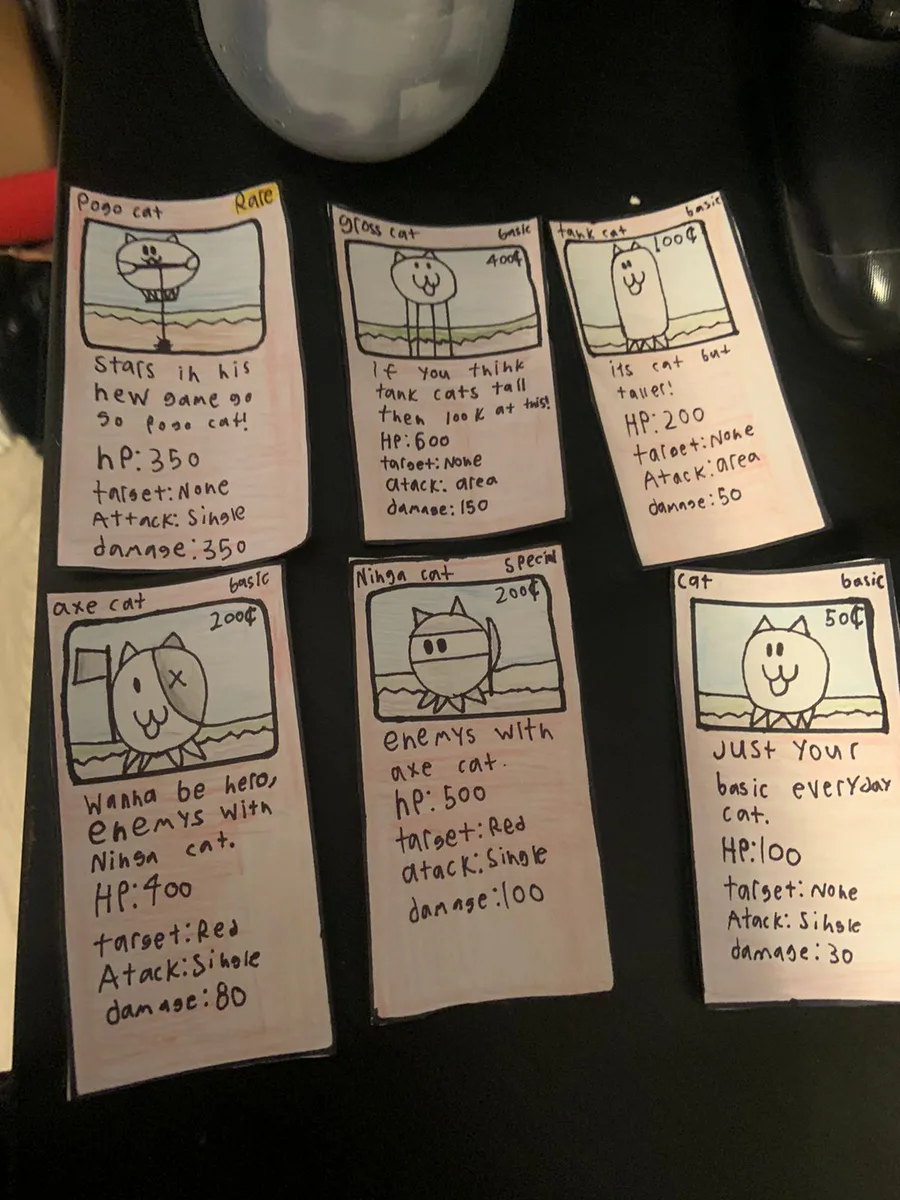 Pogo cat Rare
Stars in his
new game go
go Pogo cat!
hP: 350
target: None
Attack: Single
damage: 350
gross cat basic
400¢
if you think
tank cats tall
then look at this!
HP: 600
target: None
atack: area
damage: 150
tank cat basic
100¢
its cat but
taller!
HP: 200
target: None
Atack: area
damage: 50
axe cat basic
200¢
Wanna be hero,
enemys with
Ninga cat.
HP: 400
target: Red
Atack: Single
damage: 80
Ninga cat Special
200¢
enemys with
axe cat.
hP: 500
target: Red
atack: Single
damage: 100
Cat basic
50¢
Just Your
basic everyday
cat.
HP: 100
target: None
Atack: Single
damage: 30